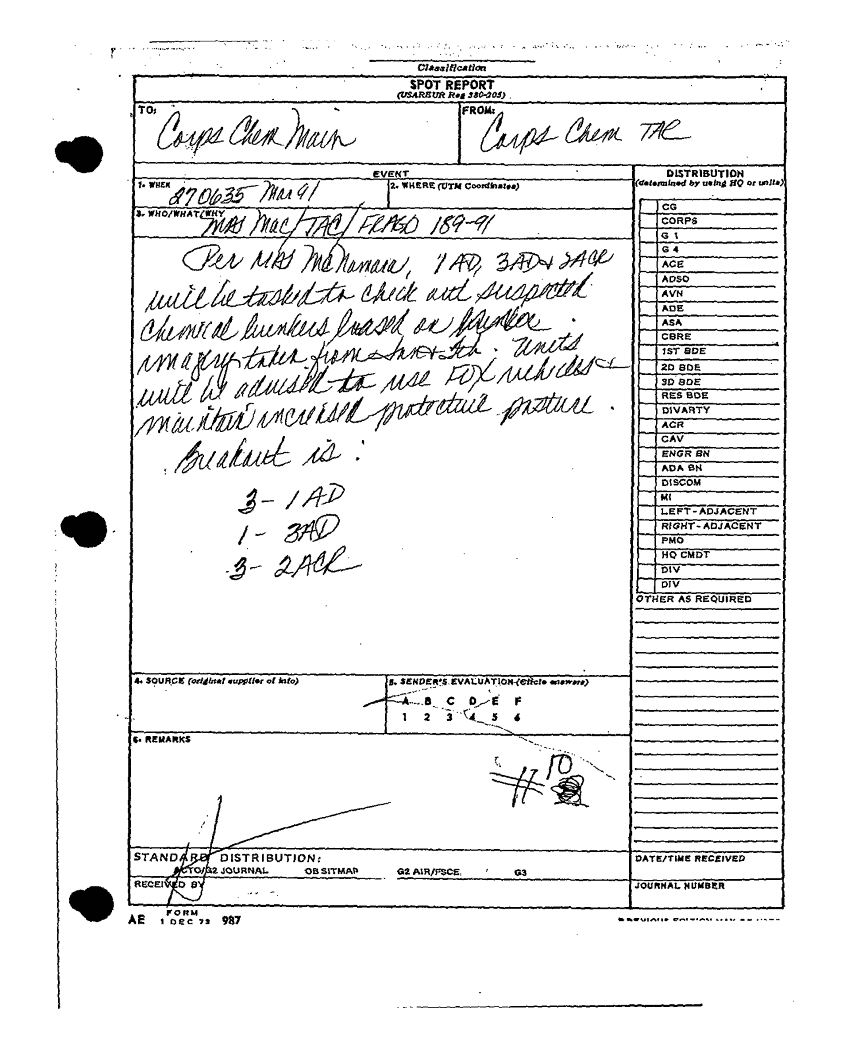 Classification
SPOT REPORT
(USAREUR Reg 380-205)
TO: Corps Chem Main
FROM: Corps Chem TAC
EVENT
1. WHEN 270635 Mar 91
2. WHERE (UTM Coordinates)
3. WHO/WHAT/WHY MAJ Mac/TAC/FRAGO 189-91
Per MAJ McNamara, 1 AD, 3AD & 2ACR
will be tasked to check out suspected
chemical bunkers based on
imagery taken from Jan & Feb. Units
will be advised to use FOX vehicles &
maintain increased protective posture.
Breakout is:
3- 1AD
1- 3AD
3- 2ACR
DISTRIBUTION
(determined by using HQ or units)
CG
CORPS
G 1
G 4
ACE
ADSO
AVN
ADE
ASA
CBRE
1ST BDE
2D BDE
3D BDE
RES BDE
DIVARTY
ACR
CAV
ENGR BN
ADA BN
DISCOM
MI
LEFT-ADJACENT
RIGHT-ADJACENT
PMO
HQ CMDT
DIV
DIV
OTHER AS REQUIRED
4. SOURCE (original supplier of info)
5. SENDER'S EVALUATION (Circle answers)
A B C D E F
1 2 3 4 5 6
6. REMARKS
# 10
STANDARD DISTRIBUTION:
ACTO/G2 JOURNAL OB SITMAP G2 AIR/FSCE G3
RECEIVED BY
DATE/TIME RECEIVED
JOURNAL NUMBER
AE FORM 987
1 DEC 73
PREVIOUS EDITION MAY BE USED